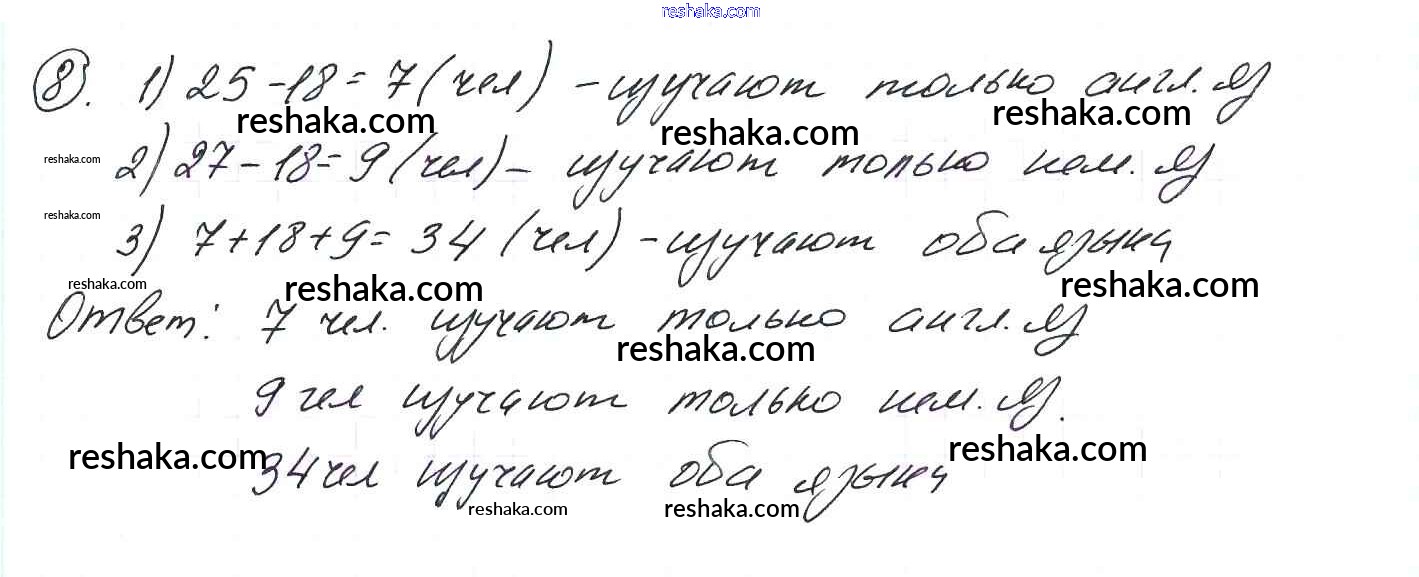 reshaka.com
8. 1) 25-18=7(чел) - изучают только англ. яз
reshaka.com reshaka.com reshaka.com
reshaka.com 2) 27-18=9(чел) - изучают только нем. яз
reshaka.com
3) 7+18+9=34 (чел) - изучают оба языка
reshaka.com reshaka.com reshaka.com
Ответ: 7 чел. изучают только англ. яз
reshaka.com
9 чел изучают только нем. яз.
reshaka.com reshaka.com
34 чел изучают оба языка
reshaka.com reshaka.com